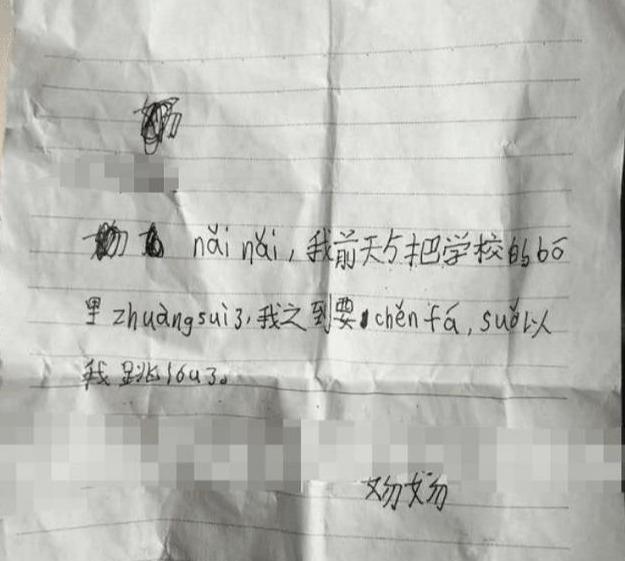 nǎi nǎi，我前天与把学校的bō
里zhuàngsuì3，我之到要chěnfá，suǒ以
我跳lóu3。